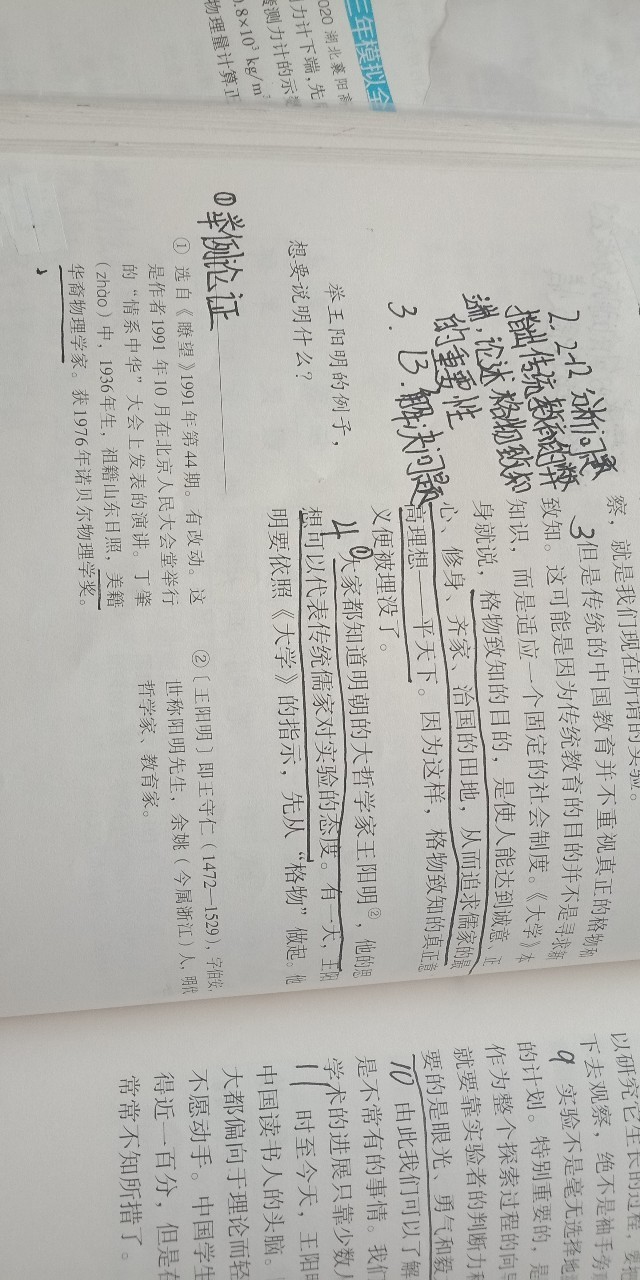 三年模拟全
2020 湖北襄阳
力计下端,先
测力计的示
0.8×10³ kg/m³
物理量计算正
察,就是我们现在所谓的实验。
3 但是传统的中国教育并不重视真正的格物和
致知。这可能是因为传统教育的目的并不是寻求新
知识,而是适应一个固定的社会制度。《大学》本
身就说,格物致知的目的,是使人能达到诚意、正
心、修身、齐家、治国的田地,从而追求儒家的最
高理想——平天下。因为这样,格物致知的真正意
义便被埋没了。
4 ① 大家都知道明朝的大哲学家王阳明②,他的思
想可以代表传统儒家对实验的态度。有一天,王阳
明要依照《大学》的指示,先从“格物”做起。他
2. 2-12 分析问题
指出传统教育的弊
端,论述格物致知
的重要性
3. 13. 解决问题
举王阳明的例子,
想要说明什么?
①举例论证
① 选自《瞭望》1991年第44期。有改动。这
是作者1991年10月在北京人民大会堂举行
的“情系中华”大会上发表的演讲。丁肇
(zhào)中,1936年生,祖籍山东日照,美籍
华裔物理学家。获1976年诺贝尔物理学奖。
②〔王阳明〕即王守仁(1472—1529),字伯安,
世称阳明先生,余姚(今属浙江)人,明代
哲学家、教育家。
以研究它生长的过程,要
下去观察,绝不是袖手旁
9 实验不是毫无选择地
的计划。特别重要的,是
作为整个探索过程的向
就要靠实验者的判断力和
要的是眼光、勇气和毅
10 由此我们可以了解
是不常有的事情。我们
学术的进展只靠少数人
11 时至今天,王阳明
中国读书人的头脑。
大都偏向于理论而轻
不愿动手。中国学生
得近一百分,但是在
常常不知所措了。